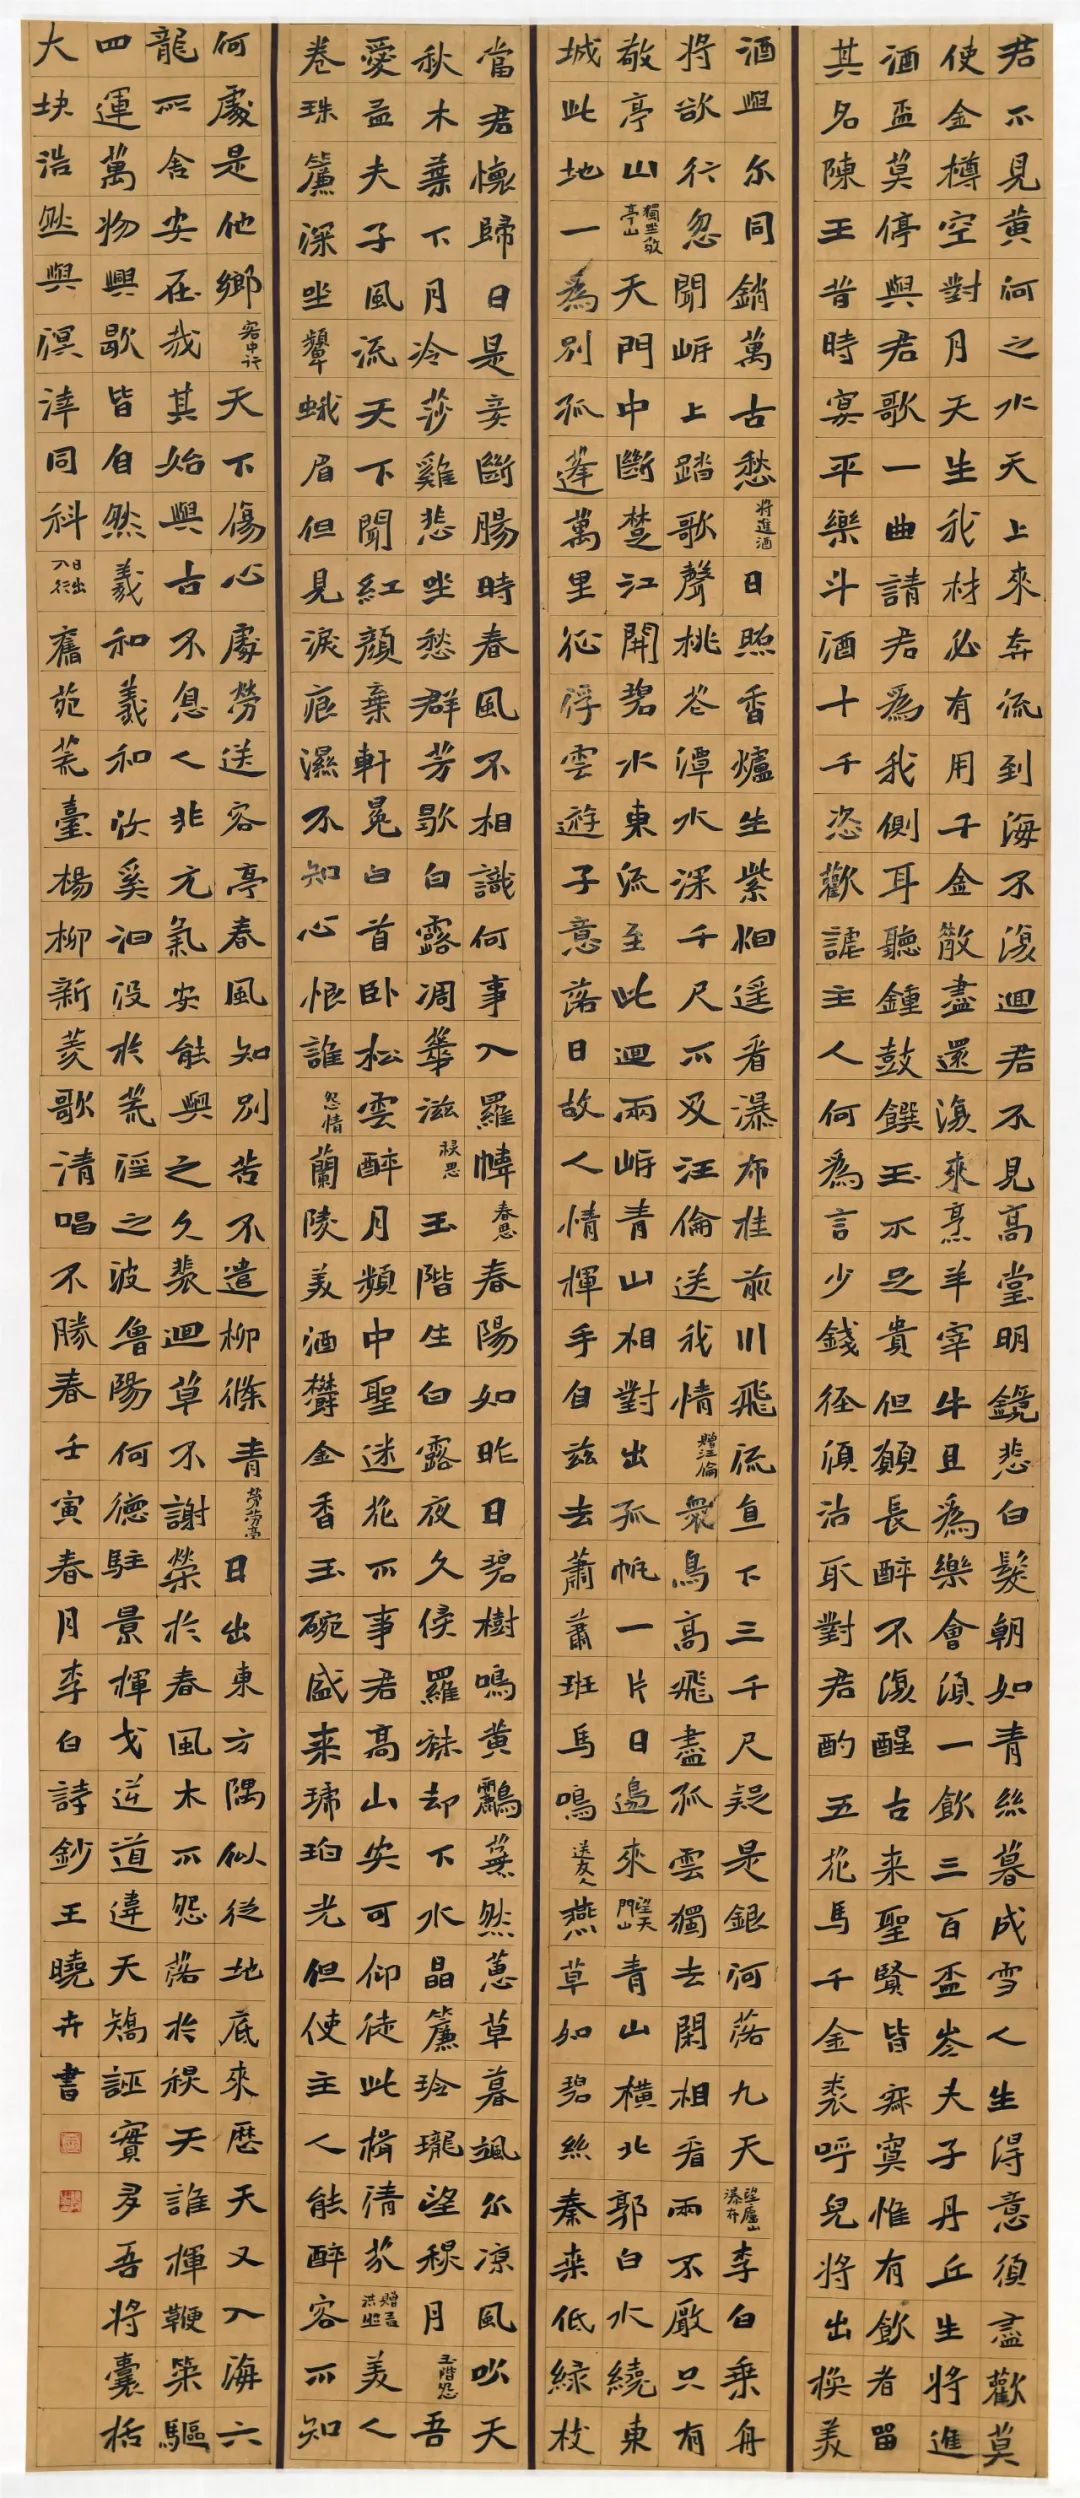 君不見黄河之水天上來奔流到海不復迴君不見高堂明鏡悲白髮朝如青絲暮成雪人生得意須盡歡莫
使金樽空對月天生我材必有用千金散盡還復來烹羊宰牛且為樂會須一飲三百盃岑夫子丹丘生將進
酒盃莫停與君歌一曲請君為我側耳聽鍾鼓饌玉不足貴但願長醉不復醒古来聖賢皆寂寞惟有飲者留
其名陳王昔時宴平樂斗酒十千恣歡謔主人何為言少錢徑須沽取對君酌五花馬千金裘呼兒將出換美
酒與尔同銷萬古愁將進酒日照香爐生紫烟遥看瀑布挂前川飛流直下三千尺疑是銀河落九天望廬山瀑布李白乗舟
將欲行忽聞岸上踏歌聲桃花潭水深千尺不及汪倫送我情贈汪倫衆鳥高飛盡孤雲獨去閑相看兩不厭只有
敬亭山獨坐敬亭山天門中斷楚江開碧水東流至此迴兩岸青山相對出孤帆一片日邊來望天門山青山橫北郭白水繞東
城此地一為別孤蓬萬里征浮雲遊子意落日故人情揮手自兹去蕭蕭班馬鳴送友人燕草如碧絲秦桒低緑枝
當君懷歸日是妾斷腸時春風不相識何事入羅幃春思春陽如昨日碧樹鳴黄鸝蕪然蕙草暮颯尔凉風吹天
秋木葉下月冷莎雞悲坐愁群芳歇白露凋華滋秋思玉階生白露夜久侵羅袜却下水晶簾玲瓏望秋月玉階怨吾
愛孟夫子風流天下聞紅顔棄軒冕白首卧松雲醉月頻中聖迷花不事君高山安可仰徒此揖清芬贈孟浩然美人
卷珠簾深坐顰蛾眉但見淚痕濕不知心恨誰怨情蘭陵美酒鬱金香玉碗盛来琥珀光但使主人能醉客不知
何處是他鄉客中行天下傷心處勞送客亭春風知別苦不遣柳條青勞勞亭日出東方隈似從地底來歷天又入海六
龍所舍安在哉其始與古不息人非元氣安能與之久裴迴草不謝榮於春風木不怨落於秋天誰揮鞭策驅
四運萬物興歇皆自然羲和羲和汝奚汩没於荒淫之波魯陽何德駐景揮戈逆道違天矯誣實多吾將囊括
大块浩然與溟涬同科日出入行舊苑荒臺楊柳新菱歌清唱不勝春壬寅春月李白詩鈔王曉卉書